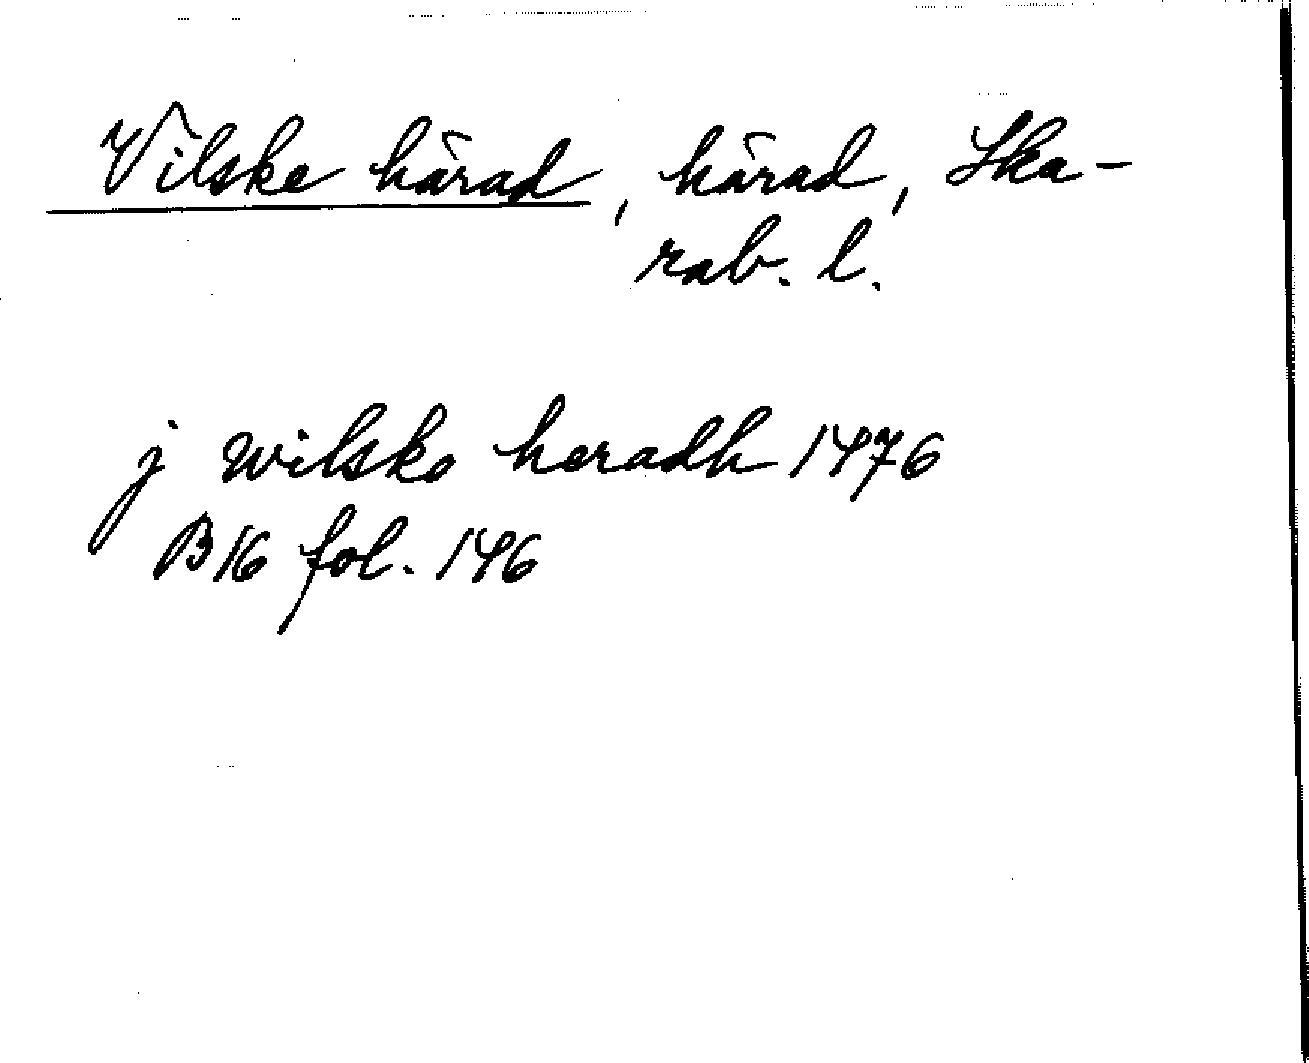 Vilske härad, härad, Ska-
rab. l.
j wilske heradh 1476
B16 fol. 146